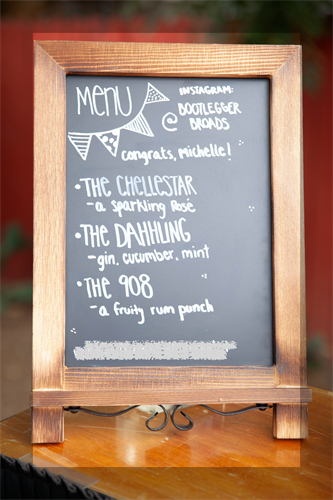 MENU
INSTAGRAM:
@ BOOTLEGGER
BROADS
congrats, michelle!
• THE CHELLESTAR
- a sparkling Rosé
• THE DAHHLING
- gin, cucumber, mint
• THE 908
- a fruity rum punch